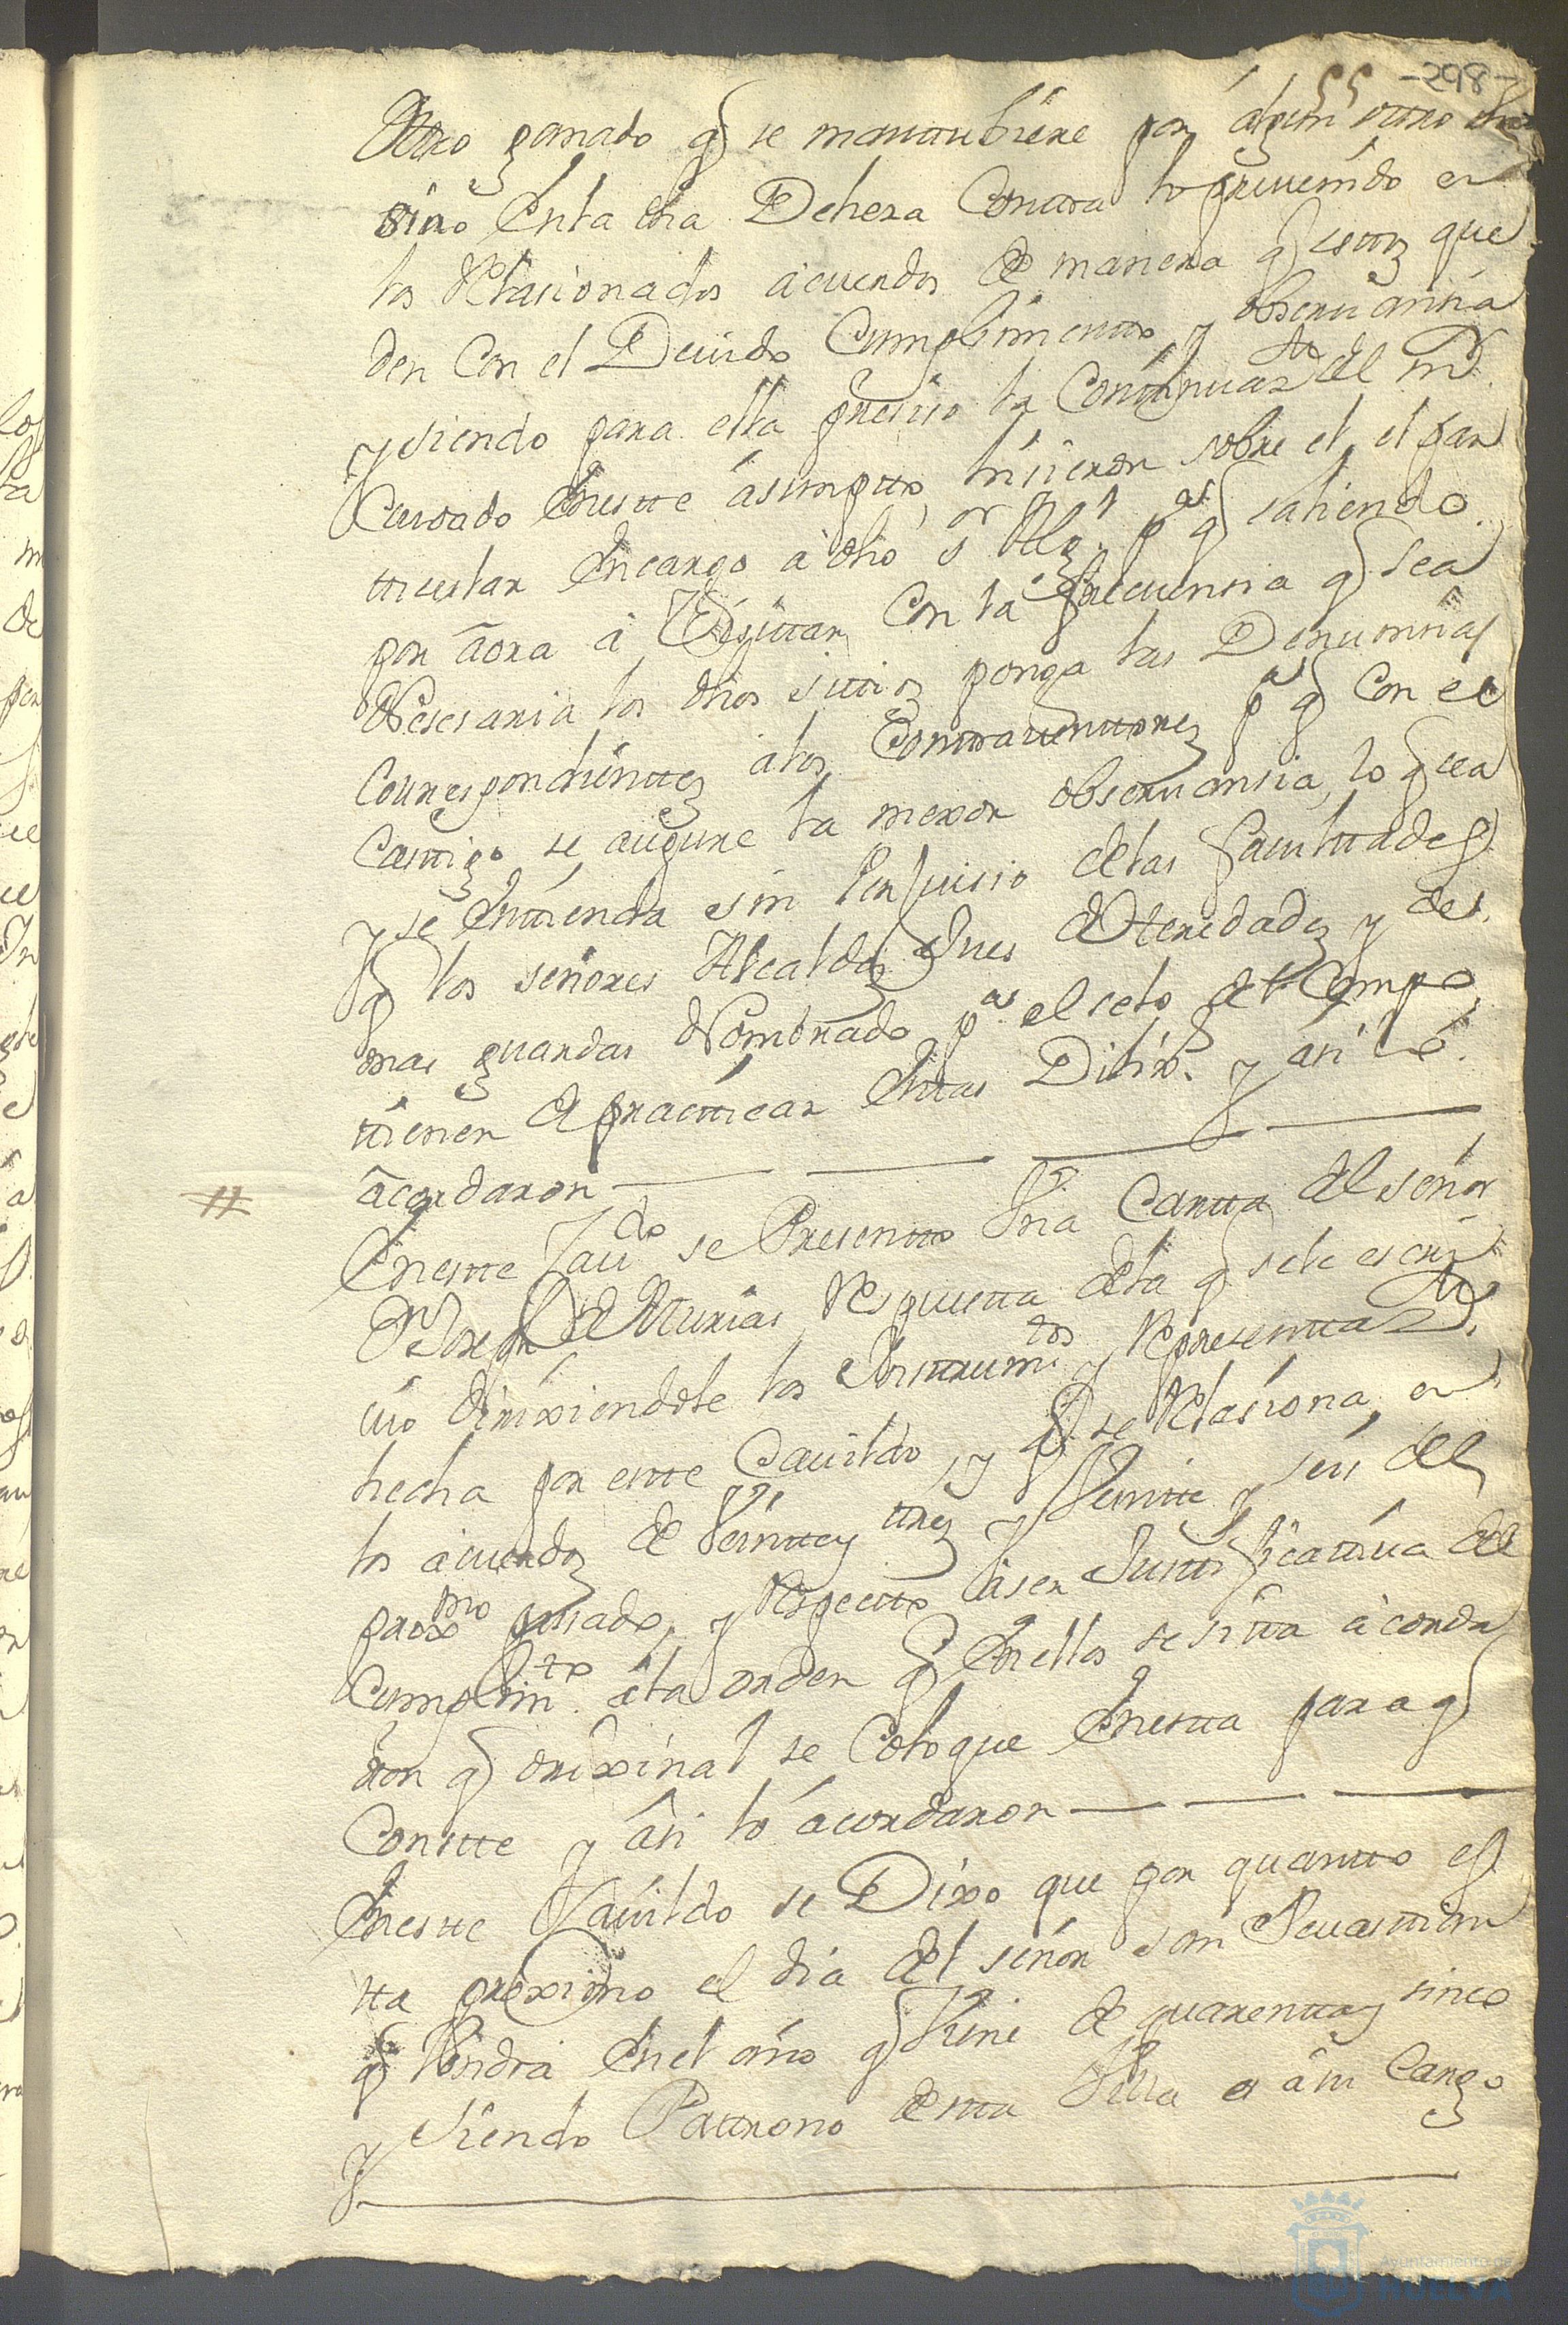 55 -298-
Otro ganado q se mantubiere por algun otro
sino en la dha Dehesa Contra lo prevenido en
los Relasionados acuerdos de manera q estos que
den con el Devido Cumplimiento y obseruansia
y siendo para ella presiso la Continuaz.on del m.r
Cuidado en este asumpto, hisieron sobre el, el par
ticular encargo a dho s.or Alg.l p.a q saliendo
por aora a Visitar con la frecuensia q sea
Nesesaria los dhos sitios ponga las Denunsias
Correspondientes a los Contraventores p.a q con el
Castigo se asigure la mexor obseruansia, lo q sea
y se entienda sin Perjuisio de las facultades
q los señores Alcaldes Jues de Heredades y de
mas guardas Nombrados p.a el selo del Campo
tienen de practicar estas Dilix.s y asi lo
acordaron
Eneste Cau.do se Presento Vna Cartta del señor
D.n Joseph de Asturias Respuesta dela q sele escri
vio dirixiendole los Instrum.tos y Representaz.on
hecha por este Cavildo, y q se Relasiona en
los acuerdos de Veintte y tres y Veintte y seis del
prox.mo pasado, y Respecto aser Justtificativa del
Cumplim.to ala orden q en ellos se sita acorda
ron q orixinal se Coloque en esta para q
Constte y asi lo acordaron
Enestte Cavildo se Dixo que por quantto es
tta proximo el dia del señor san Sevasttian
q Vendra en el año q Viene de quarenta y sinco
y siendo Pattrono de esta Villa es a su Cargo
Ayuntamiento de
HUELVA